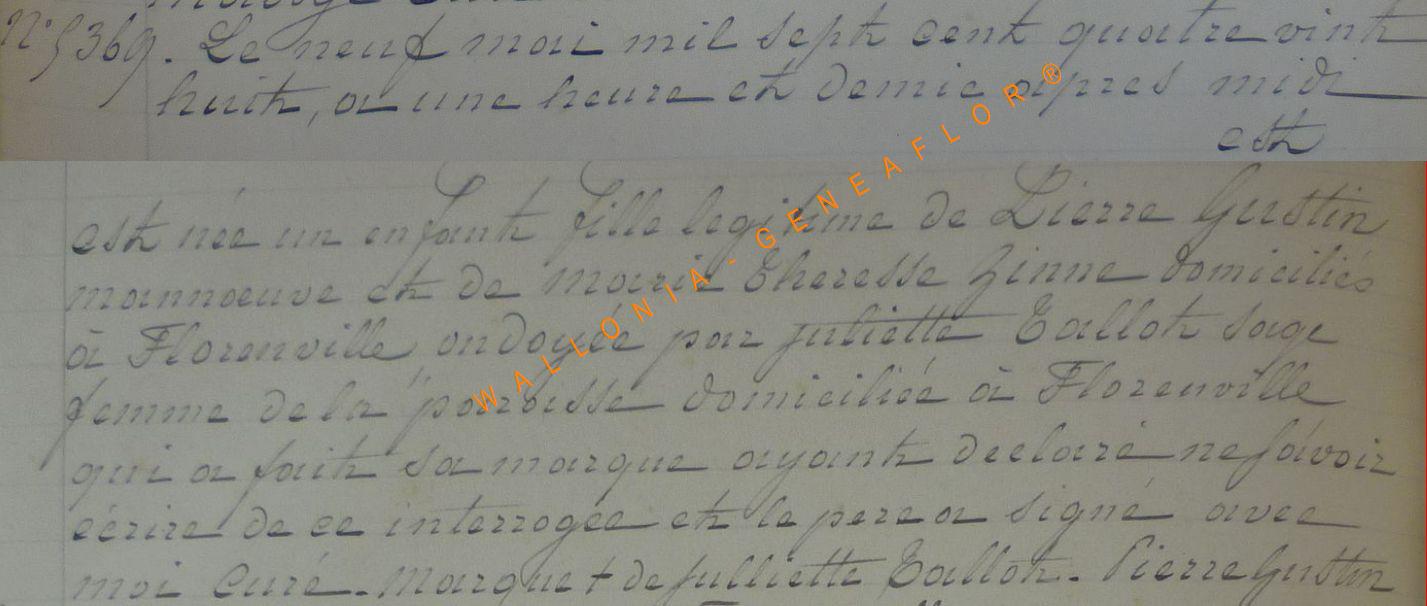 N° 5369. Le neuf mai mil sept cent quatre vint
huit, a une heure et demie apres midi
est
est née un enfant fille legitime de Pierre Gustin
mannoeuve et de Marie Theresse Zinne domiciliés
à Florenville, ondoyée par juliette Tallot sage
femme de la paroisse domiciliée à Florenville
qui a fait sa marque ayant declaré ne sávoir
eécrire de ce interrogée et le pere a signé avec
moi Curé. Marque + de Julliette Tallot. Pierre Gustin
WALLONIA-GENEAFLOR®